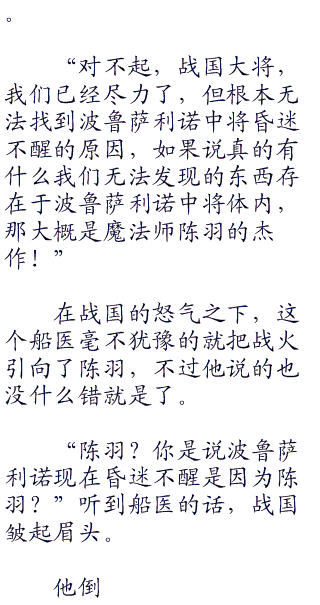 。
“对不起，战国大将，
我们已经尽力了，但根本无
法找到波鲁萨利诺中将昏迷
不醒的原因，如果说真的有
什么我们无法发现的东西存
在于波鲁萨利诺中将体内，
那大概是魔法师陈羽的杰
作！”
在战国的怒气之下，这
个船医毫不犹豫的就把战火
引向了陈羽，不过他说的也
没什么错就是了。
“陈羽？你是说波鲁萨
利诺现在昏迷不醒是因为陈
羽？”听到船医的话，战国
皱起眉头。
他倒